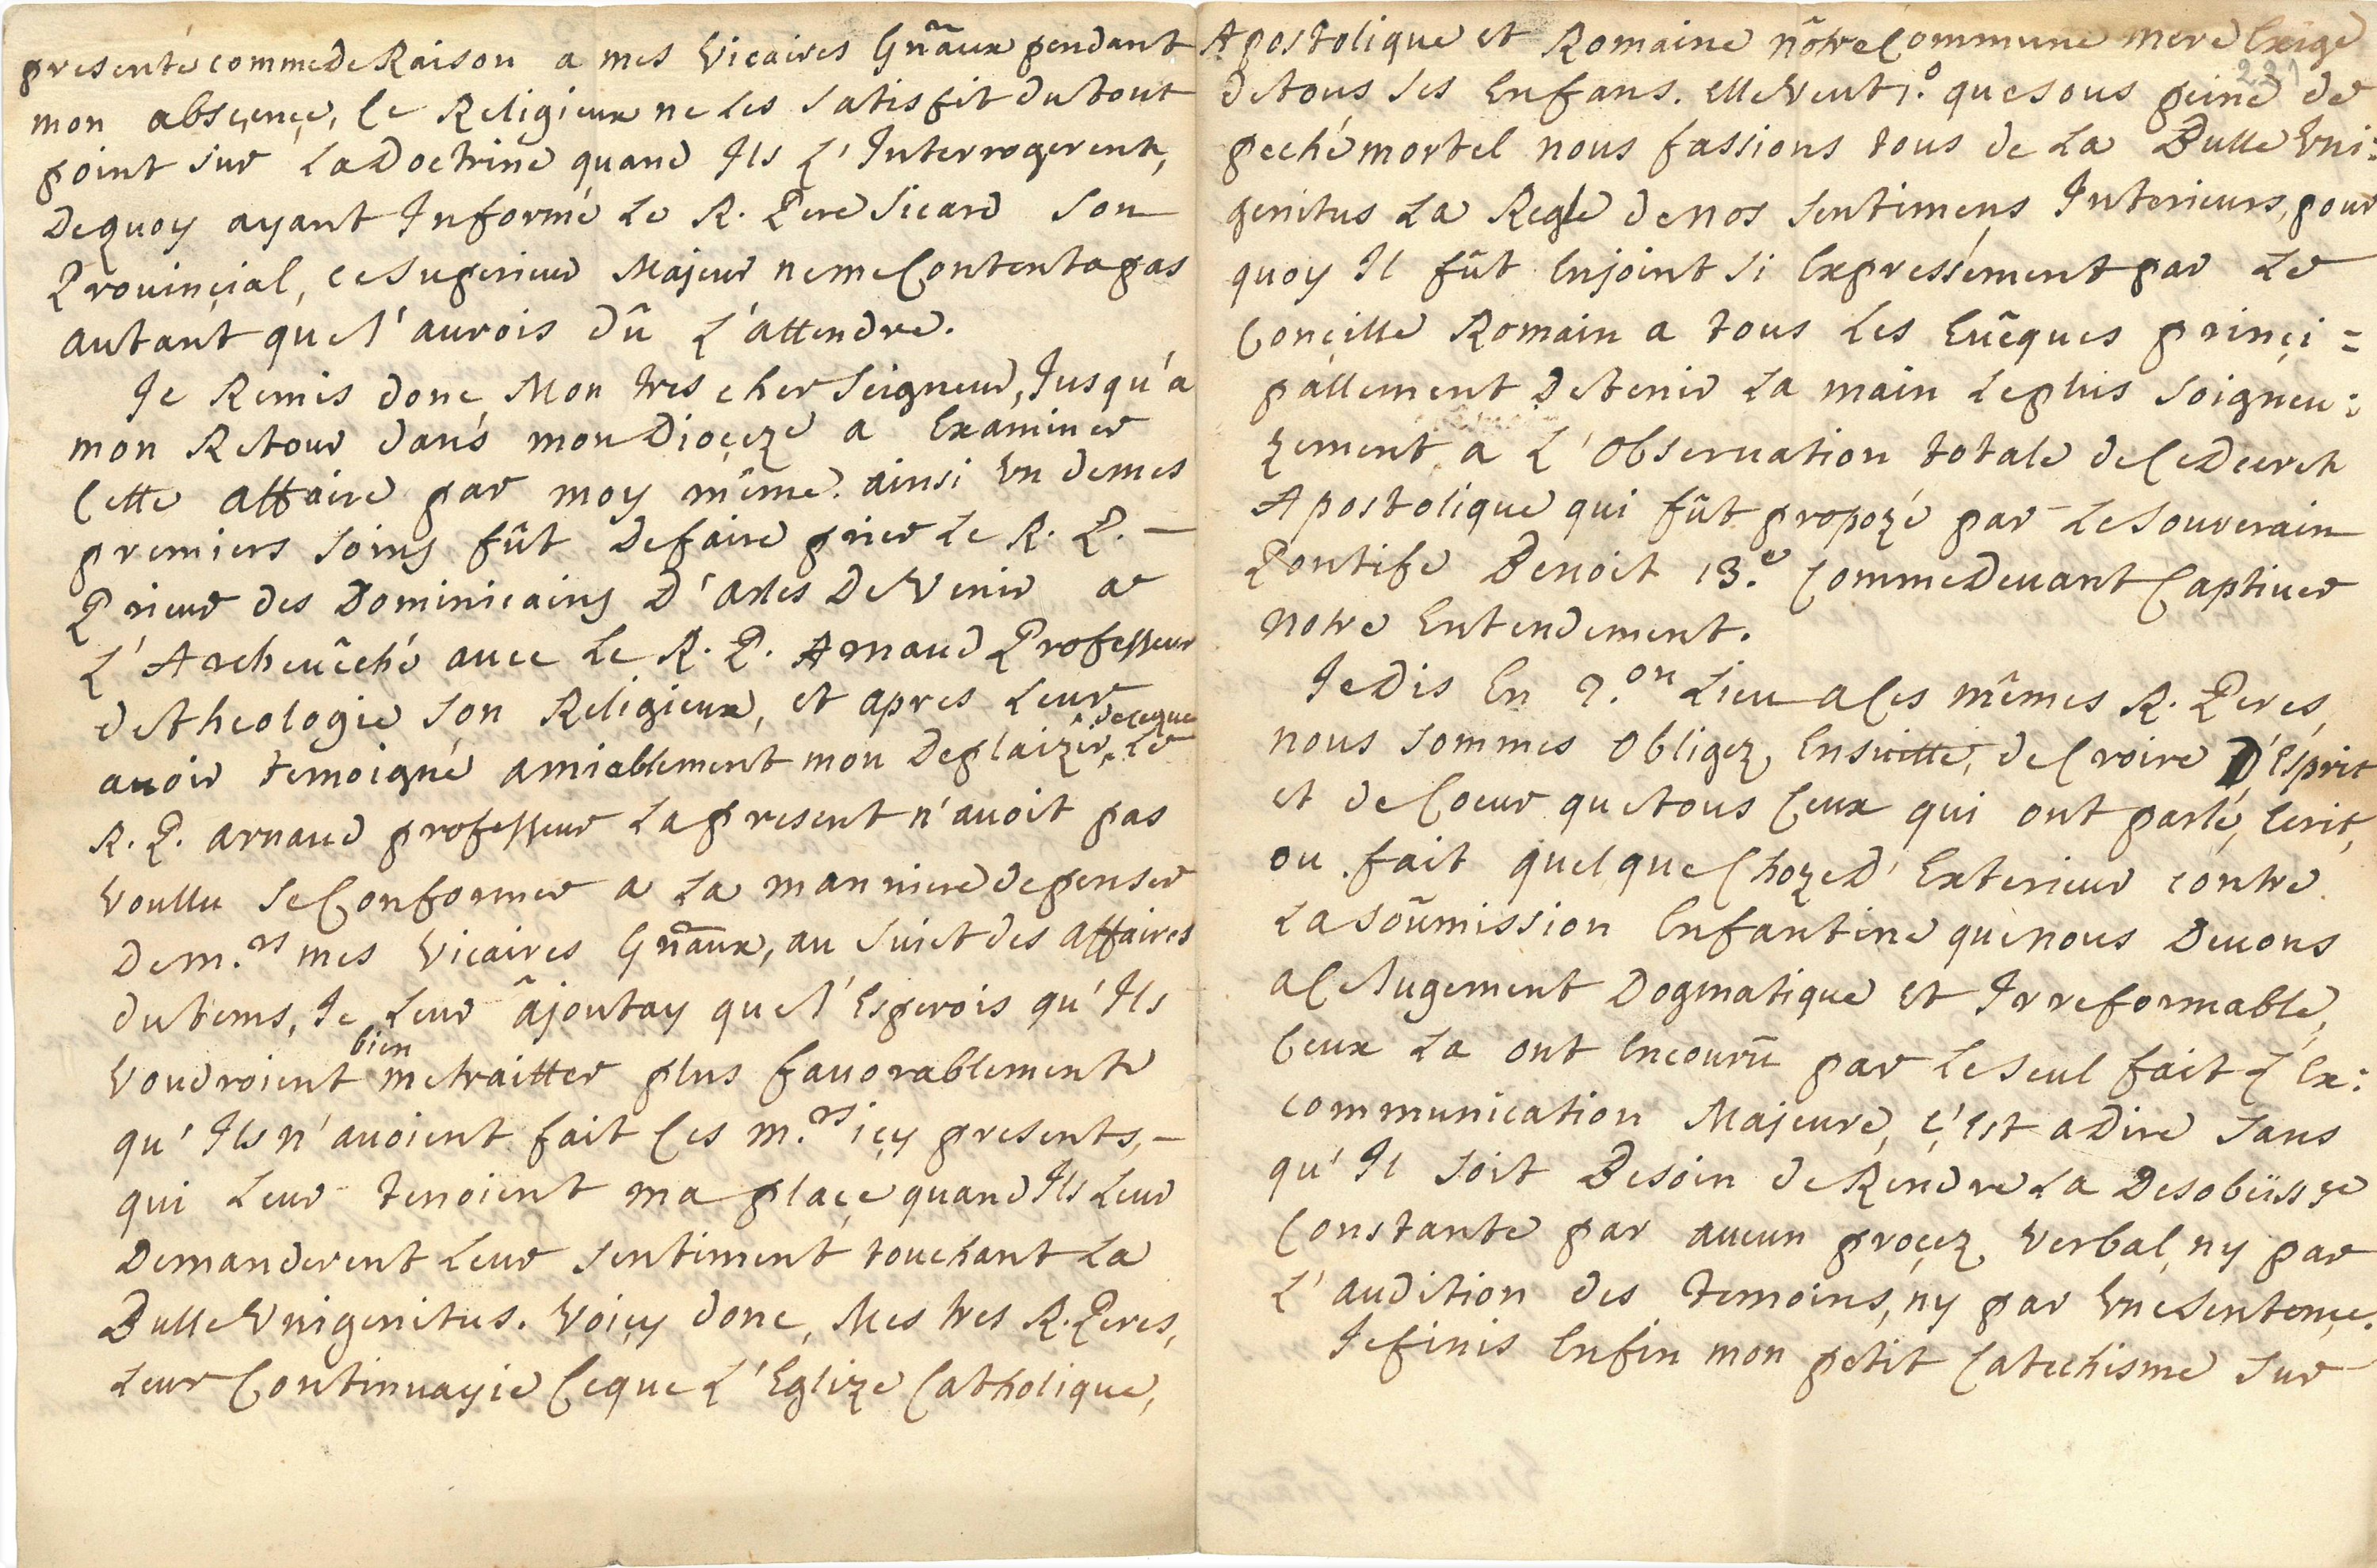 presenté comme de Raison a mes Vicaires Gnãux pendant
mon absçençe, Ce Religieux ne Les satisfit du tout
point sur La Doctrine quand Ils L'Interrogerent,
De quoy ayant Informé Le R. Pere Sicard son
Prouinçial, ce Superieur Majeur ne me Contenta pas
autant que J'aurois dû L'attendre.
Je Remis donc, Mon tres cher Seigneur, Jusqu'a
mon Retour dans mon Dioçeze a Examiner
Cette affaire par moy même. ainsi Vn de mes
premiers soins fût De faire prier Le R. P. —
Prieur des Dominicains D'Arles De Venir a
L'Archeuêché auec Le R. P. Arnaud Professeur
de Theologie son Religieux, et apres Leur
auoir temoigné amiablement mon Deplaizir, de ce que Le
R. P. arnaud professeur La present n'auoit pas
Voullu se Conformer a La manniere de penser
De m.rs mes Vicaires Gnãux, au suiet des affaires
du tems, Je Leur âjoutay que J'Esperois qu'Ils
Voudroient bien me traitter plus fauorablement
qu'Ils n'auoient fait Ces m.rs içy presents, —
qui Leur tenoient ma plaçe quand Ils Leur
Demanderent Leur sentiment touchant La
Bulle Vnigenitus. Voiçy donc, Mes tres R. Peres,
Leur Continuayie Ce que L'Eglize Catholique,
Apostolique et Romaine nôtre Commune mere Exige
221
de tous ses Enfans. elle Veut 1.º que sous peine de
peché mortel nous fassions tous de La Bulle Vni:
genitus La Regle de nos sentimens Interieurs, pour
quoy Il fût Enjoint si Expressément par Le
Conçille Romain a tous Les Euêques prinçi =
pallement De tenir La main Le plus soigneu:
zement a L'Obseruation totale de Ce Decret
Apostolique qui fût propozé par Le Souverain
Pontife Benoit 13.e Comme Deuant Captiuer
notre Entendement.
Je Dis En 2.on Lieu a Ces mêmes R. Peres,
nous sommes Obligez, Ensuitte, de Croire D'Esprit
et de Coeur que tous Ceux qui ont parlé, Ecrit,
ou fait quelque Choze D'Exterieur contre
La soûmission Enfantine que nous Deuons
a Ce Jugement Dogmatique et Irreformable,
Ceux La ont Encourû par Le seul fait L'Ex:
communication Majeure, ç'est a Dire sans
qu'Il soit Besoin de Rendre La Desobeïss.çe
Constante par aucun proçez Verbal, ny par
L'audition des temoins, ny par Vne sentençe.
Je finis Enfin mon petit Catechisme sur